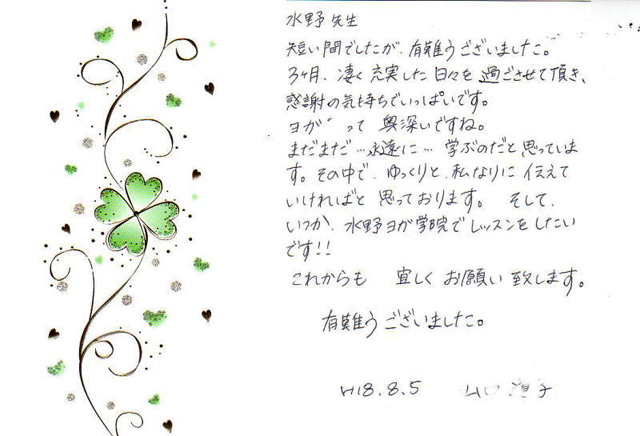 水野先生
短い間でしたが、有難うございました。
3ヶ月、凄く充実した日々を過ごさせて頂き、
感謝の気持ちでいっぱいです。
ヨガって奥深いですね。
まだまだ…永遠に…学ぶのだと思っていま
す。その中で、ゆっくりと、私なりに伝えて
いければと思っております。そして、
いつか、水野ヨガ学院でレッスンをしたい
です!!
これからも 宜しくお願い致します。
有難うございました。
H18.8.5 山口 子